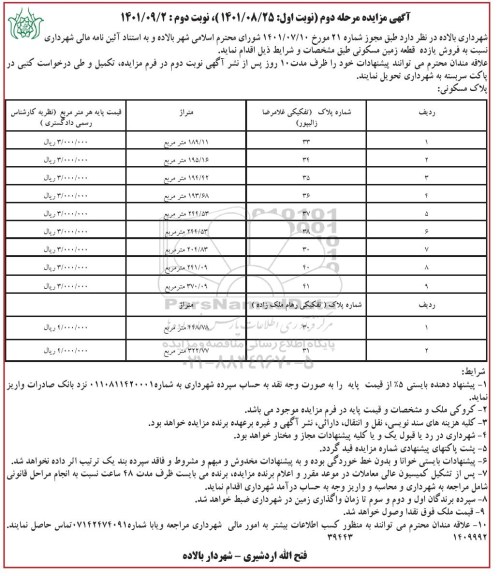 آگهی مزایده مرحله دوم (نوبت اول: ۱۴۰۱/۰۸/۲۵)، نوبت دوم : ۱۴۰۱/۰۹/۲
شهرداری بالاده در نظر دارد طبق مجوز شماره ۲۱ مورخ ۱۴۰۱/۰۷/۱۰ شورای محترم اسلامی شهر بالاده و به استناد آئین نامه مالی شهرداری
نسبت به فروش یازده قطعه زمین مسکونی طبق مشخصات و شرایط ذیل اقدام نماید.
علاقه مندان محترم می توانند پیشنهادات خود را ظرف مدت۱۰ روز پس از نشر آگهی نوبت دوم در فرم مزایده، تکمیل و طی درخواست کتبی در
پاکت سربسته به شهرداری تحویل نمایند.
پلاک مسکونی:
ردیف شماره پلاک (تفکیکی غلامرضا زالپور) متراژ قیمت پایه هر متر مربع (نظریه کارشناس رسمی دادگستری )
۱ ۳۳ ۱۸۹/۱۱ متر مربع ۳/۰۰۰/۰۰۰ ریال
۲ ۳۴ ۱۹۵/۱۶ متر مربع ۳/۰۰۰/۰۰۰ ریال
۳ ۳۵ ۱۹۴/۴۲ متر مربع ۳/۰۰۰/۰۰۰ ریال
۴ ۳۶ ۱۹۳/۶۸ متر مربع ۳/۰۰۰/۰۰۰ ریال
۵ ۳۷ ۲۴۴/۵۳ متر مربع ۳/۰۰۰/۰۰۰ ریال
۶ ۳۸ ۲۴۴/۵۳ متر مربع ۳/۰۰۰/۰۰۰ ریال
۷ ۳۰ ۲۰۴/۸۳ متر مربع ۳/۰۰۰/۰۰۰ ریال
۸ ۴۰ ۲۴۱/۰۹ متر مربع ۳/۰۰۰/۰۰۰ ریال
۹ ۴۱ ۳۷۰/۰۹ متر مربع ۳/۰۰۰/۰۰۰ ریال
ردیف شماره پلاک ( تفکیکی رهام ملک زاده ) متراژ
۱ ۳۰ ۲۴۸/۷۸ متر مربع ۴/۰۰۰/۰۰۰ ریال
۲ ۳۱ ۳۲۲/۷۷ متر مربع ۴/۰۰۰/۰۰۰ ریال
شرایط:
۱- پیشنهاد دهنده بایستی ۵٪ از قیمت پایه را به صورت وجه نقد به حساب سپرده شهرداری به شماره۰۱۱۰۸۱۱۴۲۰۰۰۱ نزد بانک صادرات واریز
نماید.
۲- کروکی ملک و مشخصات و قیمت پایه در فرم مزایده موجود می باشد.
۳- کلیه هزینه های سند نویسی، نقل و انتقال، دارائی، نشر آگهی و غیره برعهده برنده مزایده خواهد بود.
۴- شهرداری در رد یا قبول یک و یا کلیه پیشنهادات مجاز و مختار خواهد بود.
۵- پشت پاکتهای پیشنهادی شماره مزایده قید گردد.
۶- پیشنهادات بایستی خوانا و بدون خط خوردگی بوده و به پیشنهادات مخدوش و مبهم و مشروط و فاقد سپرده بند یک ترتیب اثر داده نخواهد شد.
۷- پس از تشکیل کمیسیون عالی معاملات در موعد مقرر و اعلام برنده مزایده، برنده می بایست ظرف مدت ۴۸ ساعت نسبت به انجام مراحل قانونی
شامل مراجعه به شهرداری و محاسبه و واریز وجه به حساب درآمد شهرداری اقدام نماید.
۸- سپرده برندگان اول و دوم و سوم تا زمان واگذاری زمین در شهرداری ضبط خواهد شد.
۹- قیمت ملک فوق نقدا وصول خواهد شد.
۱۰- علاقه مندان محترم می توانند به منظور کسب اطلاعات بیشتر به امور مالی شهرداری مراجعه ویابا شماره۰۷۱۴۲۴۷۴۰۹۱تماس حاصل نمایند.
۱۴۰۹۹۹۲ ۳۹۴۴۳
فتح الله اردشیری - شهردار بالاده